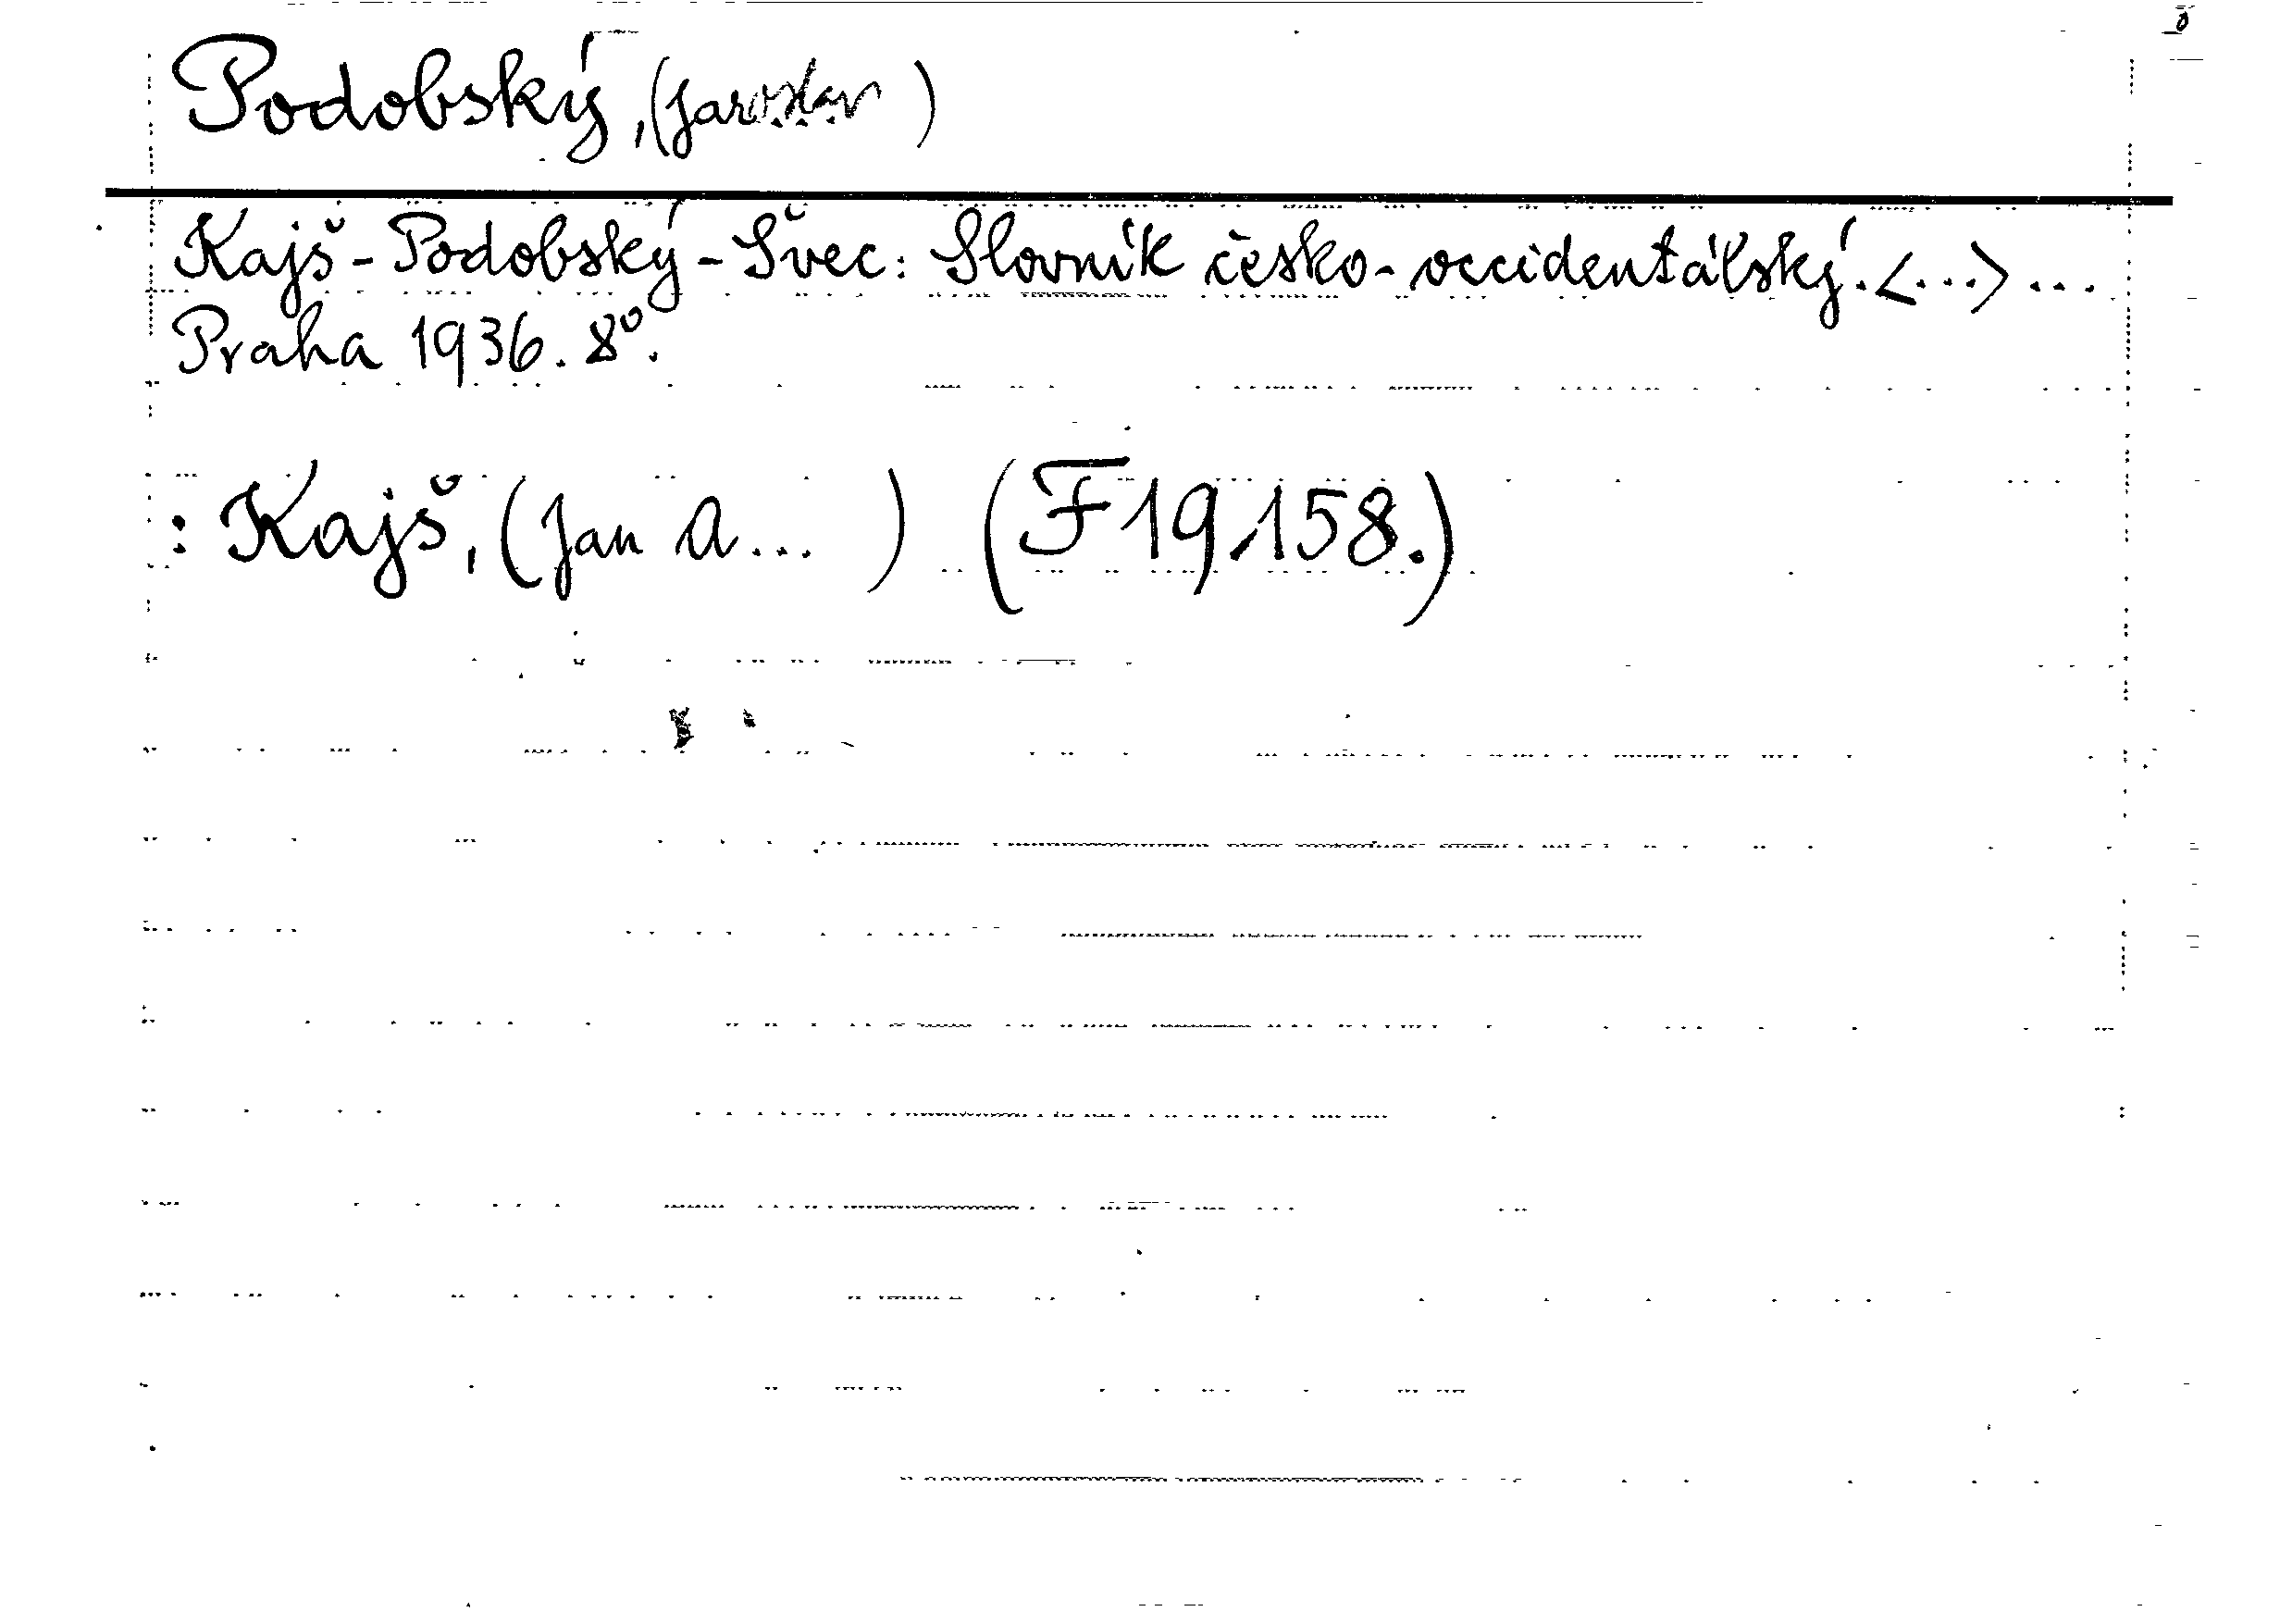 Podobský, (Jaroslav )
Kajš-Podobský-Švec: Slovník česko-occidentálský. <...> ...
Praha 1936. 8°.
: Kajš, (Jan A... ) (F 19,158.)